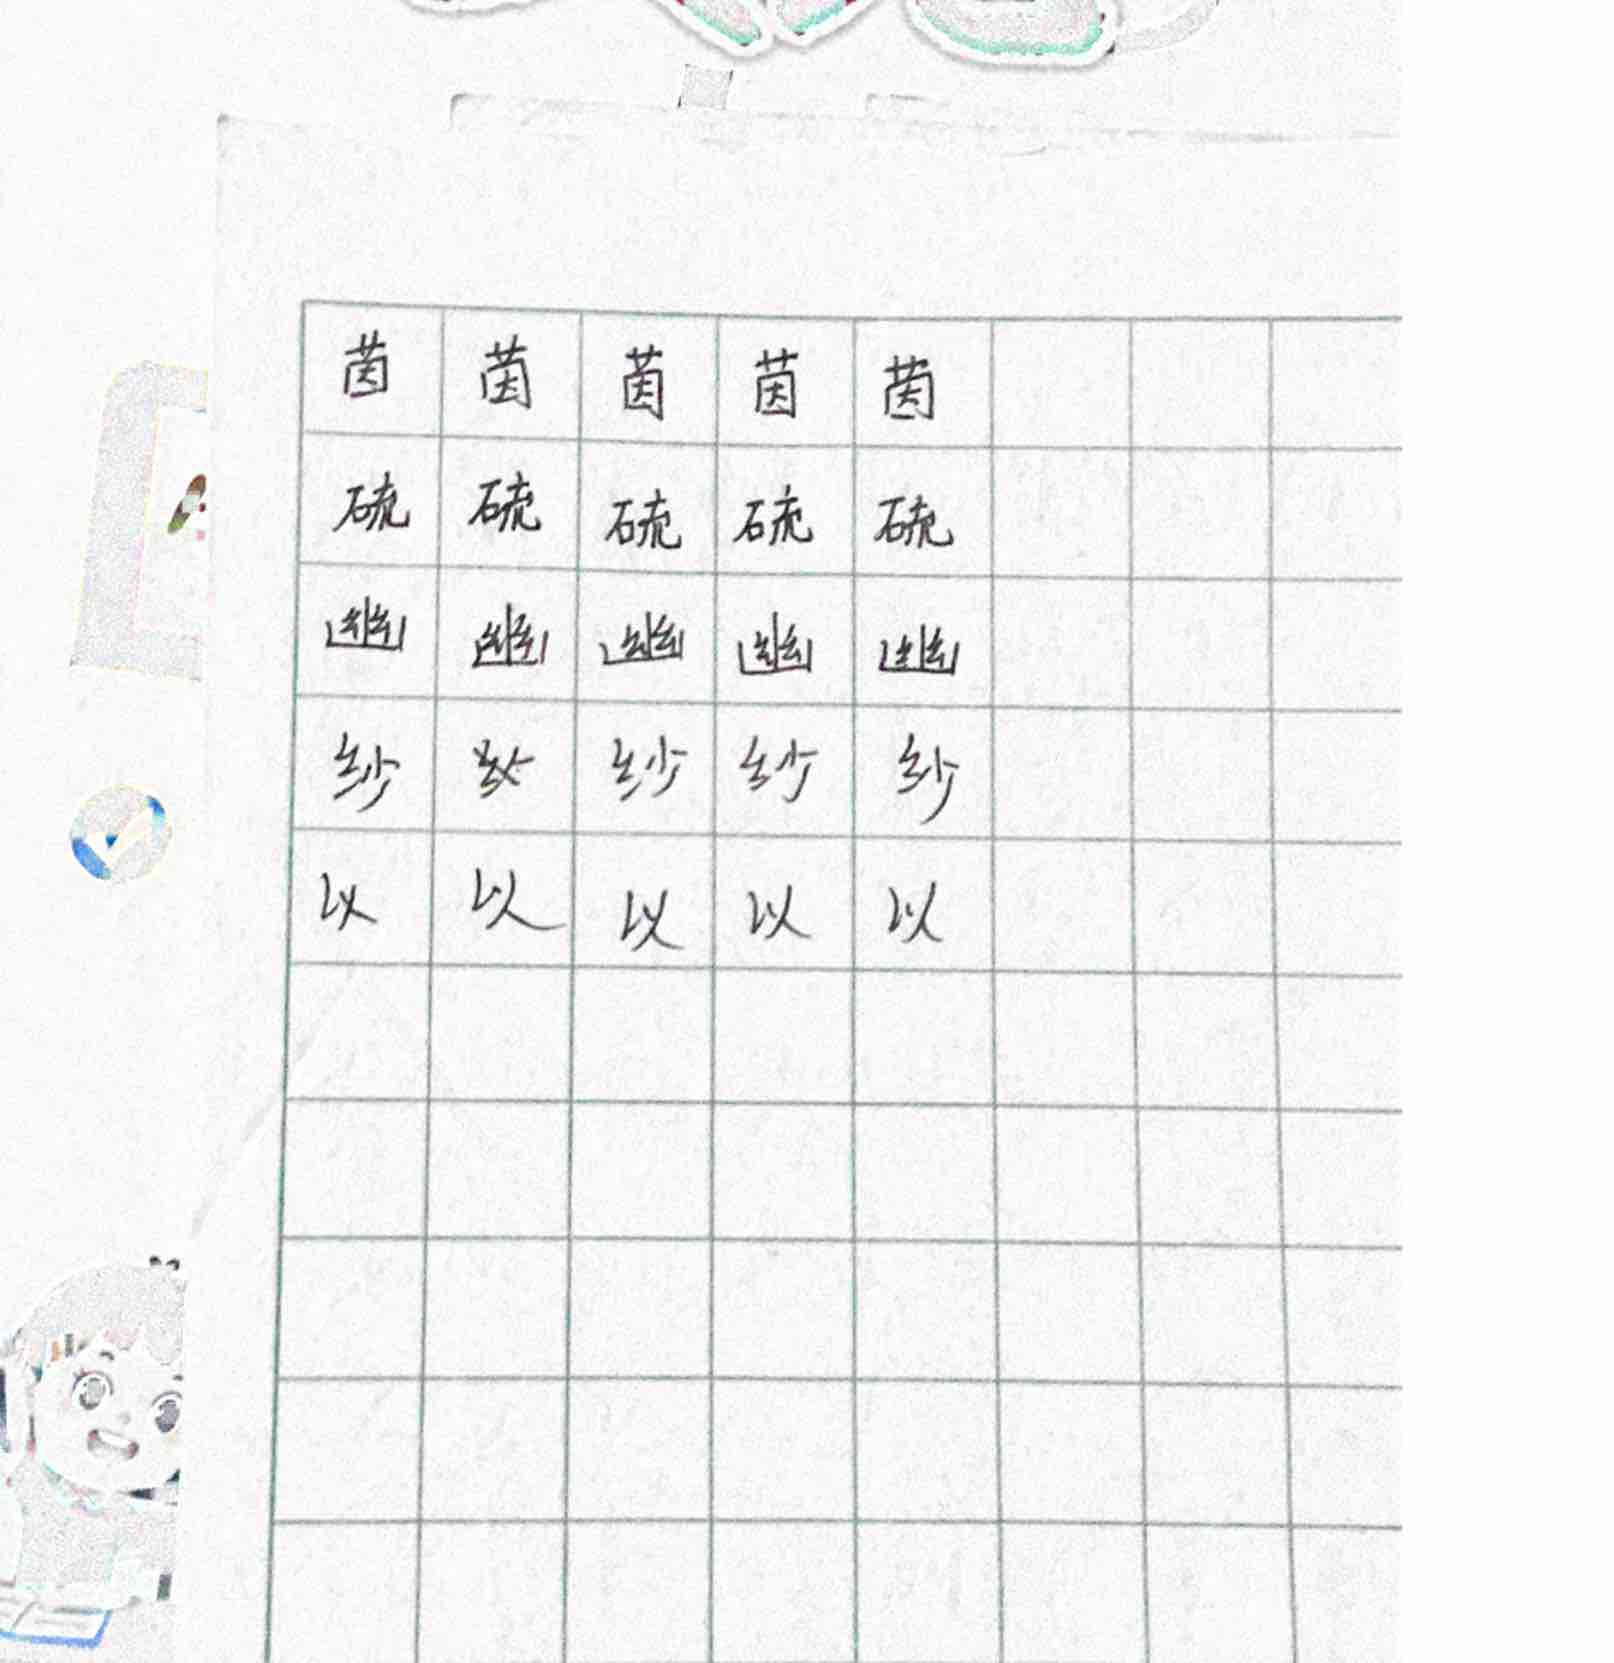 茵茵茵茵茵
硫硫硫硫硫
幽幽幽幽幽
纱纱纱纱
以以以以以